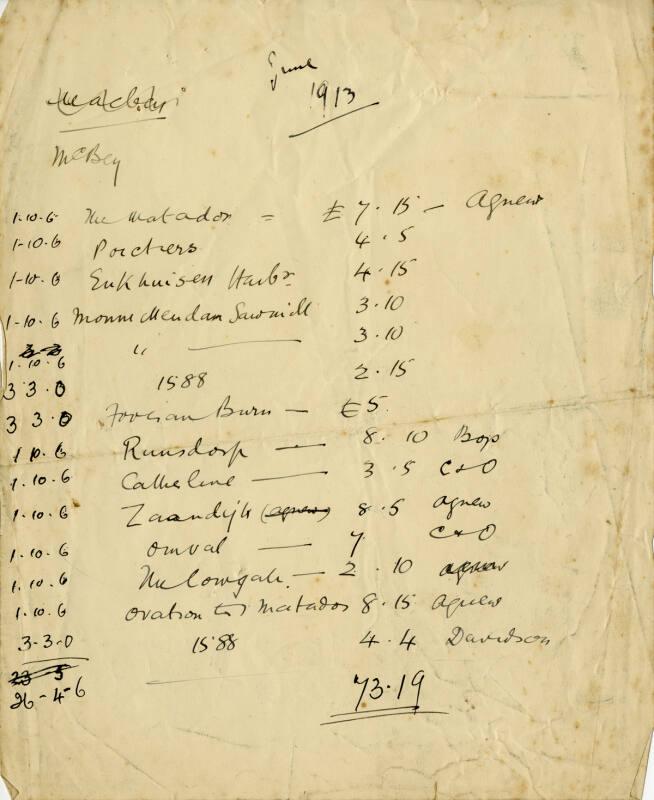 June
1913
McBey
1-10-6 The Matador = £7.15 - Agnew
1-10-6 Poictiers 4.5
1-10.6 Enkhuisen Harbr 4.15
1-10.6 Monnickendam Sawmill 3.10
3-3
1.10.6 " — 3.10
3 3.0 1588 2.15
3 3.0 Fovian Burn — £5.
1.10.6 Ruusdorp — 8.10
1.10.6 Catherine — 3.5 C&O
1.10.6 Zaandijk (agnew) 8.5 agnew
1.10.6 Omval — 7 C&O
1.10.6 The Cowgate. — 2.10 agnew
1.10.6 Ovation to Matador 8.15 agnew
3-3-0 1588 4.4 Davidson
23 5
26-4-6 73.19